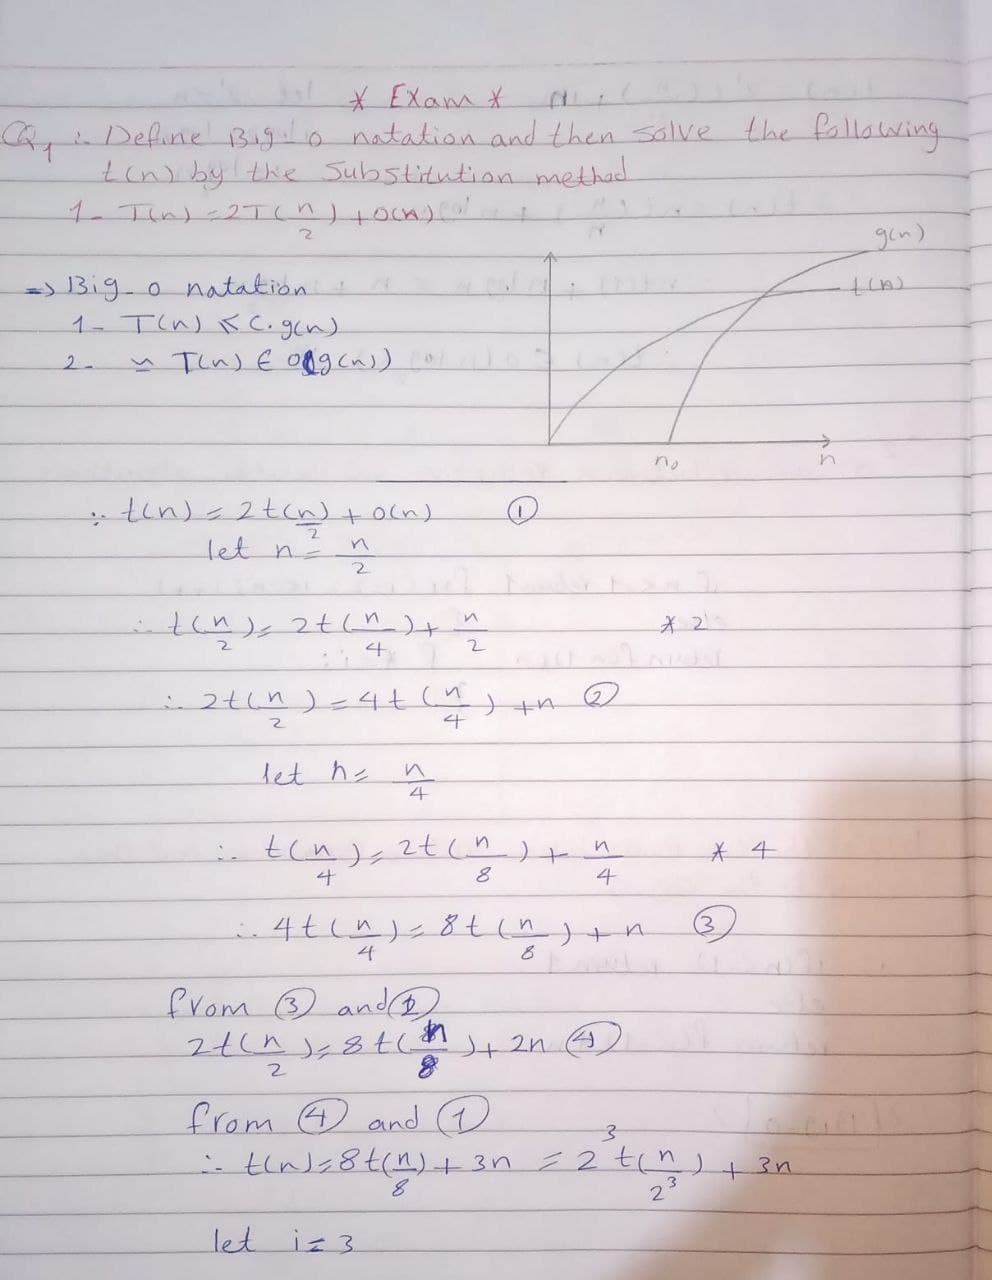 * Exam *
Q1 :- Define Big-o natation and then solve the following
t(n) by the Substitution method
1- T(n) = 2T(n/2) + O(n)
g(n)
t(n)
=> Big-o natation
1- T(n) ≤ C. g(n)
2- T(n) ∈ O(g(n))
n₀ n
∵ t(n) = 2t(n/2) + o(n) ①
let n = n/2
∴ t(n/2) = 2t(n/4) + n/2 * 2
∴ 2t(n/2) = 4t(n/4) + n ②
let n = n/4
∴ t(n/4) = 2t(n/8) + n/4 * 4
∴ 4t(n/4) = 8t(n/8) + n ③
from ③ and ②
2t(n/2) = 8t(n/8) + 2n ④
from ④ and ①
∴ t(n) = 8t(n/8) + 3n = 2³ t(n/2³) + 3n
let i = 3